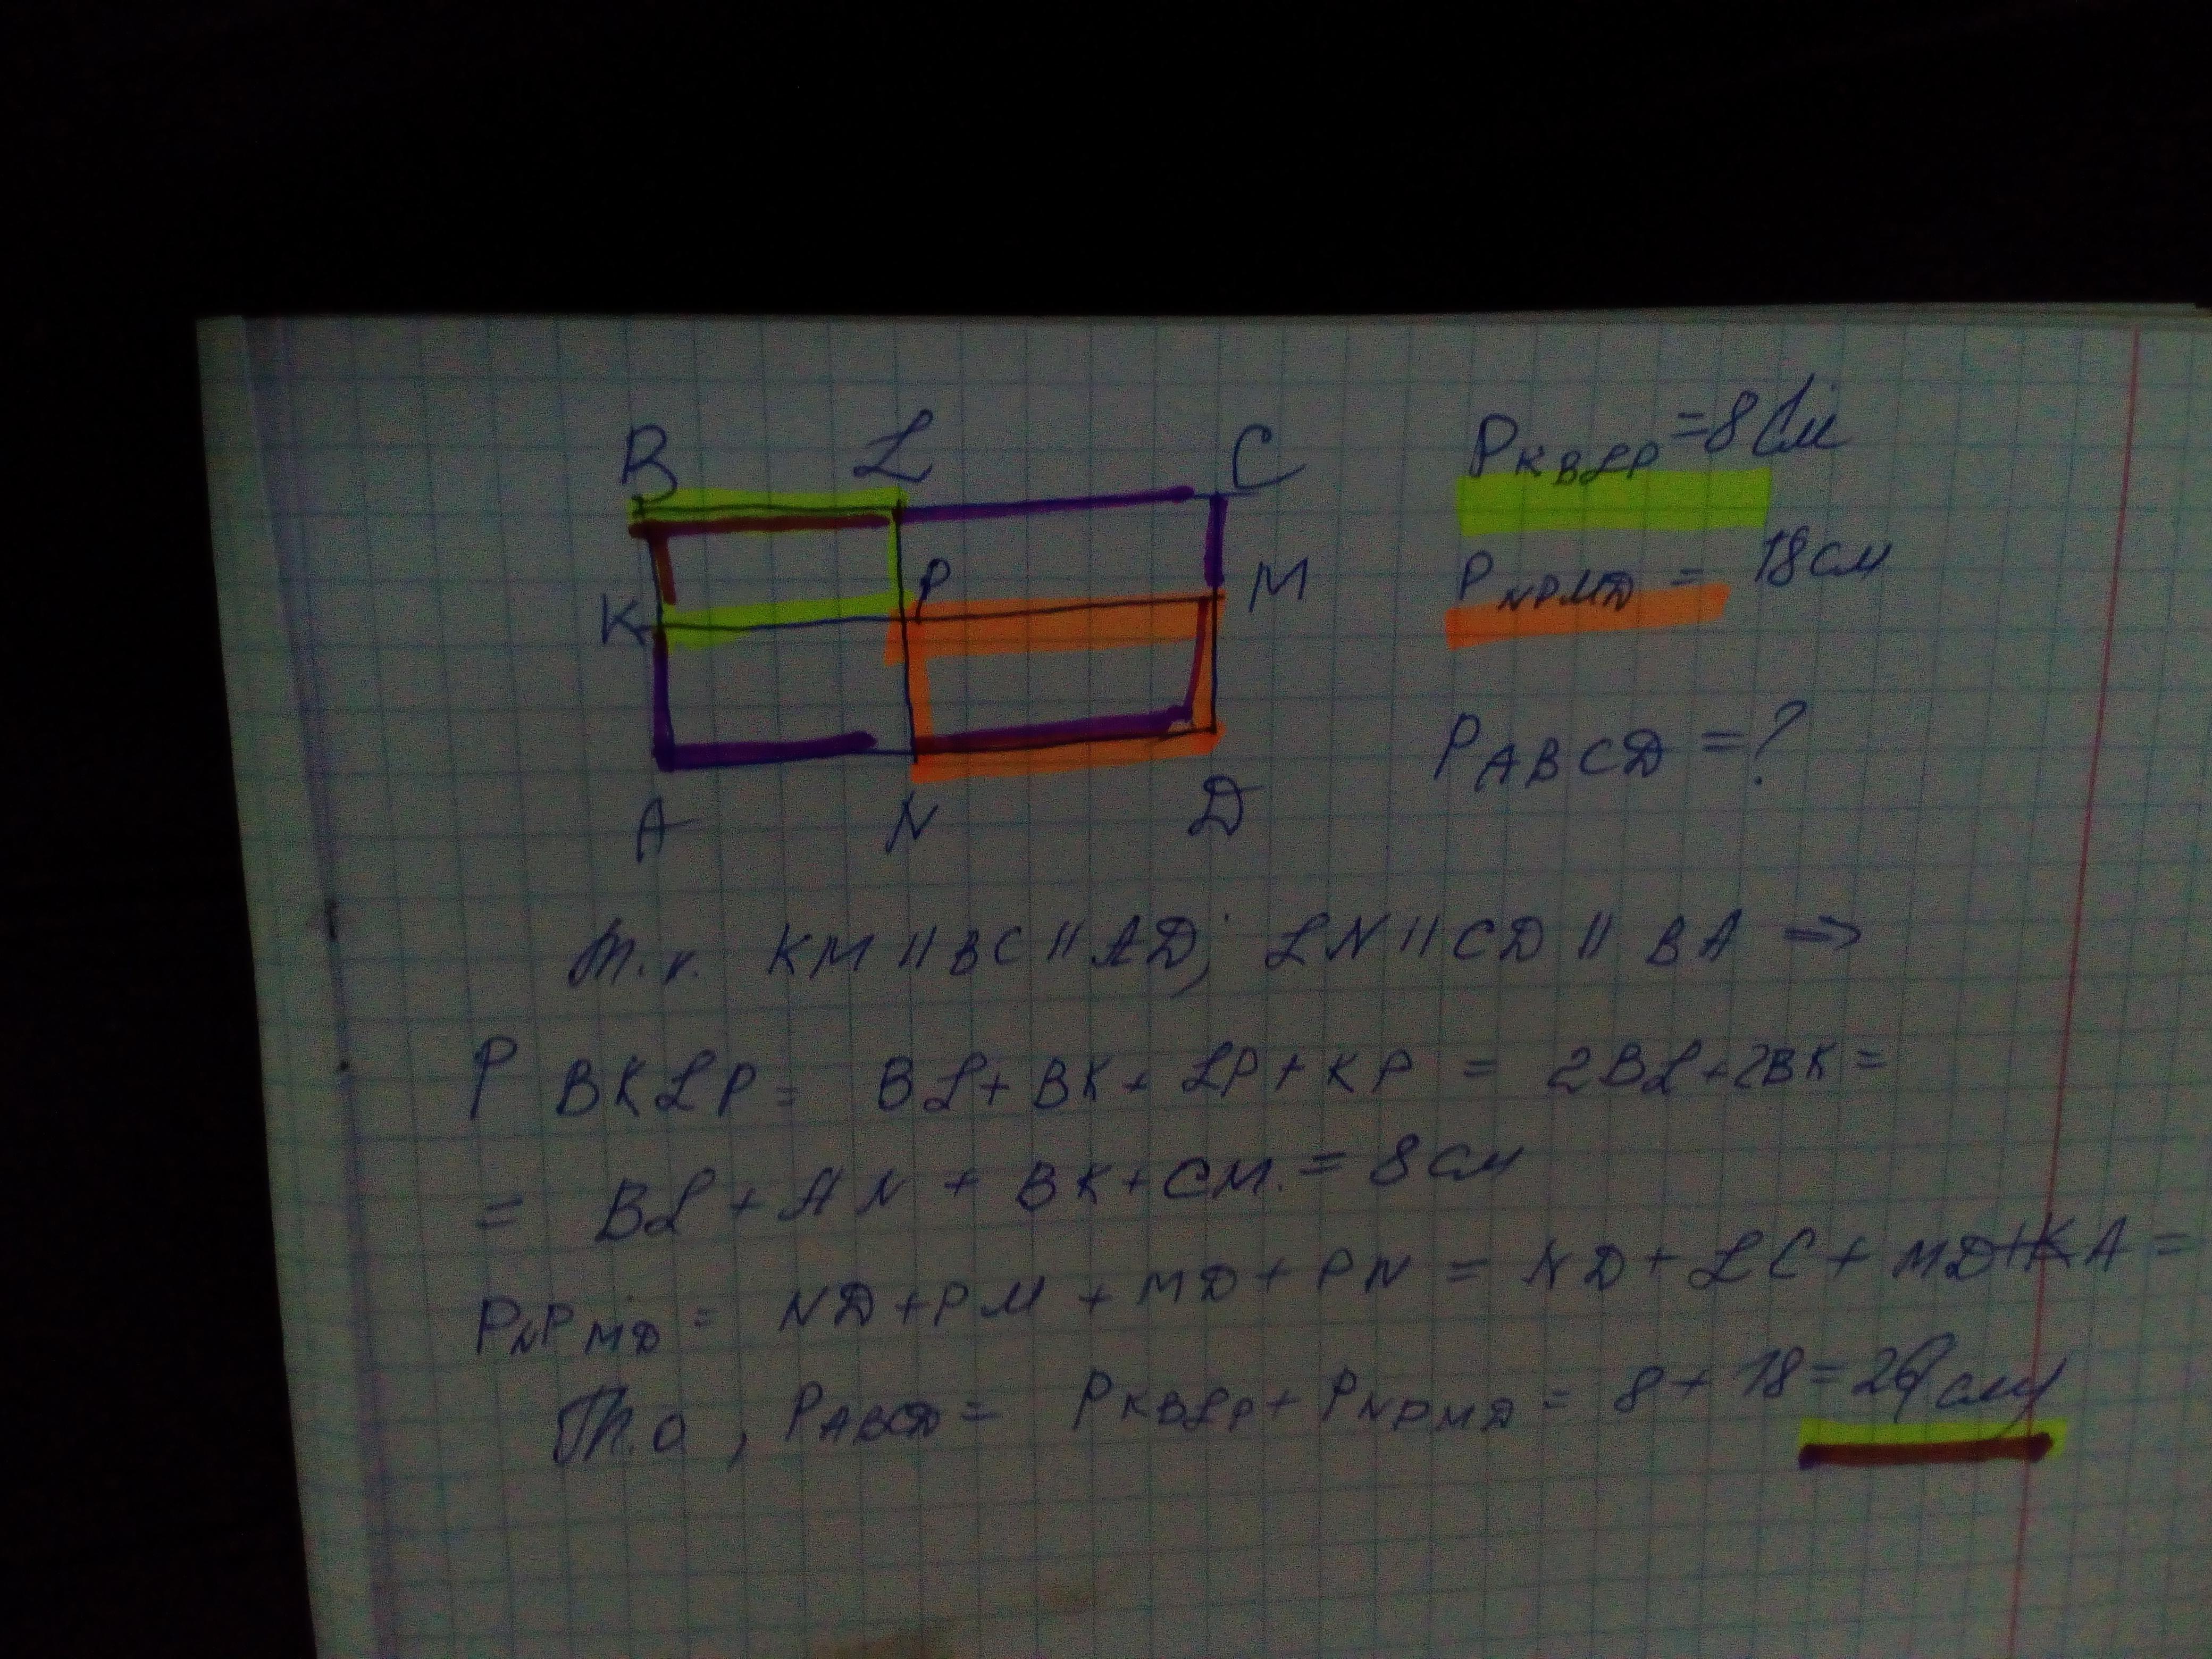 B L C
K P M
A N D
P KBLP = 8 см
P NPMD = 18 см
P ABCD = ?
Т.к. KM || BC || AD; LN || CD || BA ⇒
P BKLP = BL + BK + LP + KP = 2BL + 2BK =
= BL + AN + BK + CM. = 8 см
P NPMD = ND + PM + MD + PN = ND + LC + MD + KA =
Т.о, P ABCD = P KBLP + P NPMD = 8 + 18 = 26 см